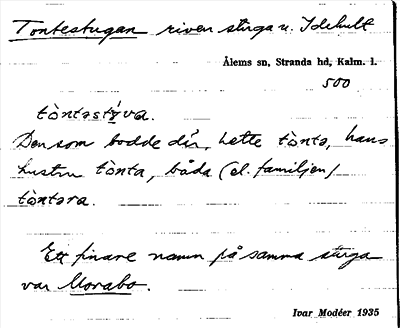 Tontestugan riven stuga u. Idehult
Ålems sn, Stranda hd, Kalm. l.
500
tòntəstýva.
Den som bodde där, hette tòntə, hans
hustru tònta, båda (el. familjen)
tòntəra.
Ett finare namn på samma stuga
var Morabo.
Ivar Modéer 1935